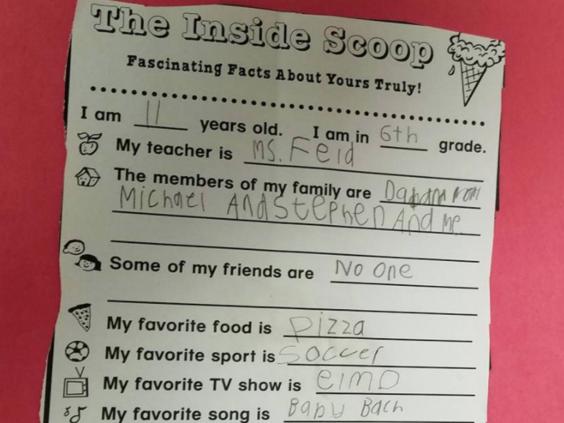 The Inside Scoop
Fascinating Facts About Yours Truly!
I am 11 years old. I am in 6th grade.
My teacher is MS. Feld
The members of my family are
Michael And Stephen And me.
Some of my friends are No one
My favorite food is pizza
My favorite sport is Soccer
My favorite TV show is eimo
My favorite song is Baby Bach